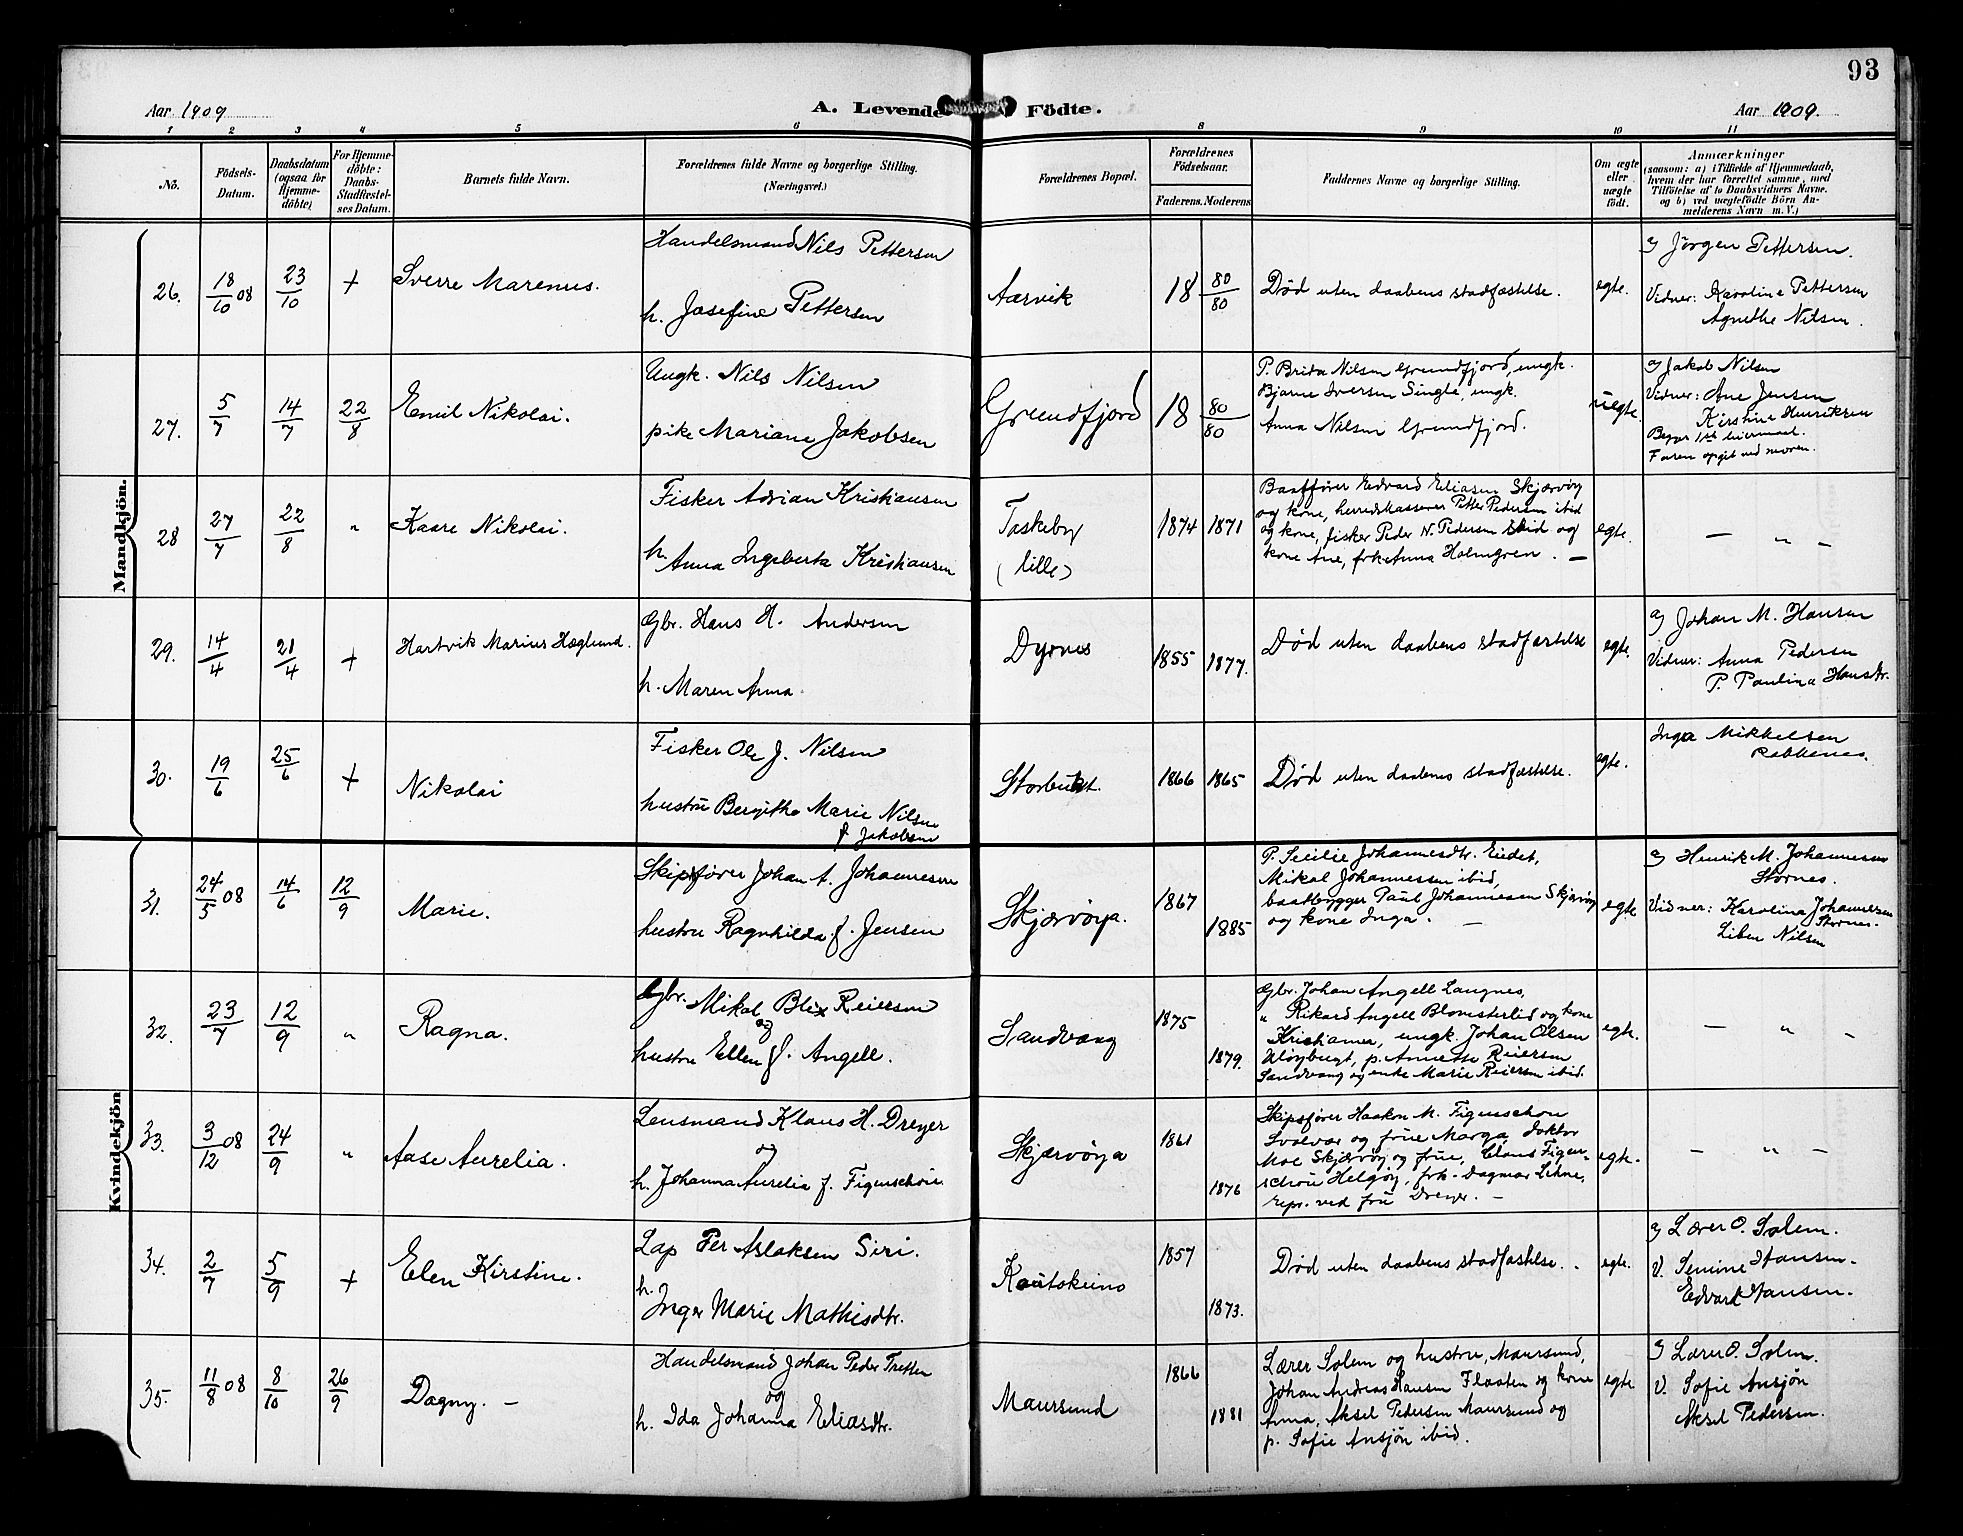 93
Aar 1909
A. Levende Födte.
Aar 1909.
1 2 3 4 5 6 8 9 10 11
Nō.
Födsels-
Datum.
Daabsdatum
(ogsaa for
Hjemme-
döbte)
For Hjemme-
döbte:
Daabs-
Stadfæstel-
ses Datum.
Barnets fulde Navn.
Forældrenes fulde Navne og borgerlige Stilling.
(Næringsvei.)
Forældrenes Bopæl.
Forældrenes
Födselsaar.
Faderens. Moderens
Faddernes Navne og borgerlige Stilling.
Om ægte
eller
uægte
födt.
Anmærkninger
(saasom: a) i Tilfælde af Hjemmedaab,
hvem der har forrettet samme, med
Tilföielse af to Daabsvidners Navne.
og b) ved uægtefödte Börn An-
melderens Navn m. V.)
Mandkjön.
26.
18/10 08
23/10
+
Sverre Marenus.
Handelsmand Nils Pettersen
h. Josefine Pettersen
Aarvik
18 80/80
Död uten daabens stadfæstelse.
egte.
a) Jörgen Pettersen.
Vidner: Karoline Pettersen
Agnethe Nilsen.
27.
5/7
14/7
22/8
Emil Nikolai.
Ungk. Nils Nilsen
pike Mariane Jakobsen
Grundfjord
18 80/80
P. Brita Nilsen Grundfjord, ungk.
Bjarne Iversen Singla, ungk.
Anna Nilsen Grundfjord.
uegte.
a) Jakob Nilsen
Vidner: Ane Jensen
Kirstine Henriksen
Begges 1ste leiermaal.
Faren opgit ved moren.
28
27/7
22/8
"
Kaare Nikolai.
Fisker Adrian Kristiansen
h. Anna Ingeberta Kristiansen
Taskeby
(lille)
1874 1871
Baatfører Edvard Eliasen Skjærvöy
og kone, herredskasserer Petter Pedersen ibid
og kone, fisker Peder N. Pedersen ibid og
kone Ane, frk Anna Holmgren. —
egte.
— " —
29.
14/4
21/4
+
Hartvik Marius Høglund.
Gbr. Hans H. Andersen
h. Maren Anna.
Dyrnes
1855 1877.
Död uten daabens stadfæstelse
egte.
a) Johan M. Hansen
Vidner: Anna Pedersen
P. Paulina Hansdtr.
30.
19/6
25/6
+
Nikolai
Fisker Ole J. Nilsen
hustru Bergitha Marie Nilsen
f. Jakobsen
Storbukt.
1866 1865
Död uten daabens stadfæstelse.
egte.
Inga Mikkelsen
Rabbenes.
Kvindekjön
31.
24/5 08
14/6
12/9
Marie.
Skipsfører Johan A. Johannesen
hustru Ragnhilda f. Jensen
Skjærvöya.
1867
1885
P. Secilie Johannesdtr. Eidet,
Mikal Johannessen ibid,
baatbygger Paul Johannesen Skjærvöy
og kone Inga. —
egte
a) Henrik M. Johannesen
Stornes.
Vidner: Karolina Johannesen
Stornes.
Liben Nilsen
32.
23/7
12/9
"
Ragna.
Gbr. Mikal Blix Reiersen
og
hustru Ellen f. Angell.
Sandvang
1875
1879.
Gbr. Johan Angell Langnes,
" Rikard Angell Blomsterlid og kone
Kristianna, ungk. Johan Olsen
Uløybugt, p. Annette Reiersen
Sandvang og enke Marie Reiersen ibid.
egte.
— " —
33.
3/12 08
24/9
"
Aase Aurelia.
Lensmand Klaus H. Dreyer
og
h. Johanna Aurelia f. Figenschou.
Skjærvöya
1861
1876
Skipsfører Haakon M. Figenschou
Svolvær og frue Marga, doktor
Moe Skjærvöy og frue, Claus Figen-
schou Helgöy, frk. Dagmar Lihme,
repr. ved fru Dreyer. —
egte.
— " —
34.
2/7
5/9
+
Elen Kirstine.
Lap Per Aslaksen Siri.
h.
Inger Marie Mathisdtr.
Kautokeino
1857
1873.
Död uten daabens stadfæstelse.
egte.
a) Lærer O. Solem.
V. Semine Hansen.
Edvart Hansen.
35.
11/8 08
8/10
26/9
Dagny. —
Handelsmand Johan Peder Tretten
og
h. Ida Johanna Eliasdtr.
Maursund
1866
1881
Lærer Solem og hustru, Maursund,
Johan Andreas Hansen Flaaten og kone
Anna, Aksel Pedersen Maursund og
p. Sofie Ansjön ibid.
egte
a) Lærer O. Solem.
V. Sofie Ansjön
Aksel Pedersen.